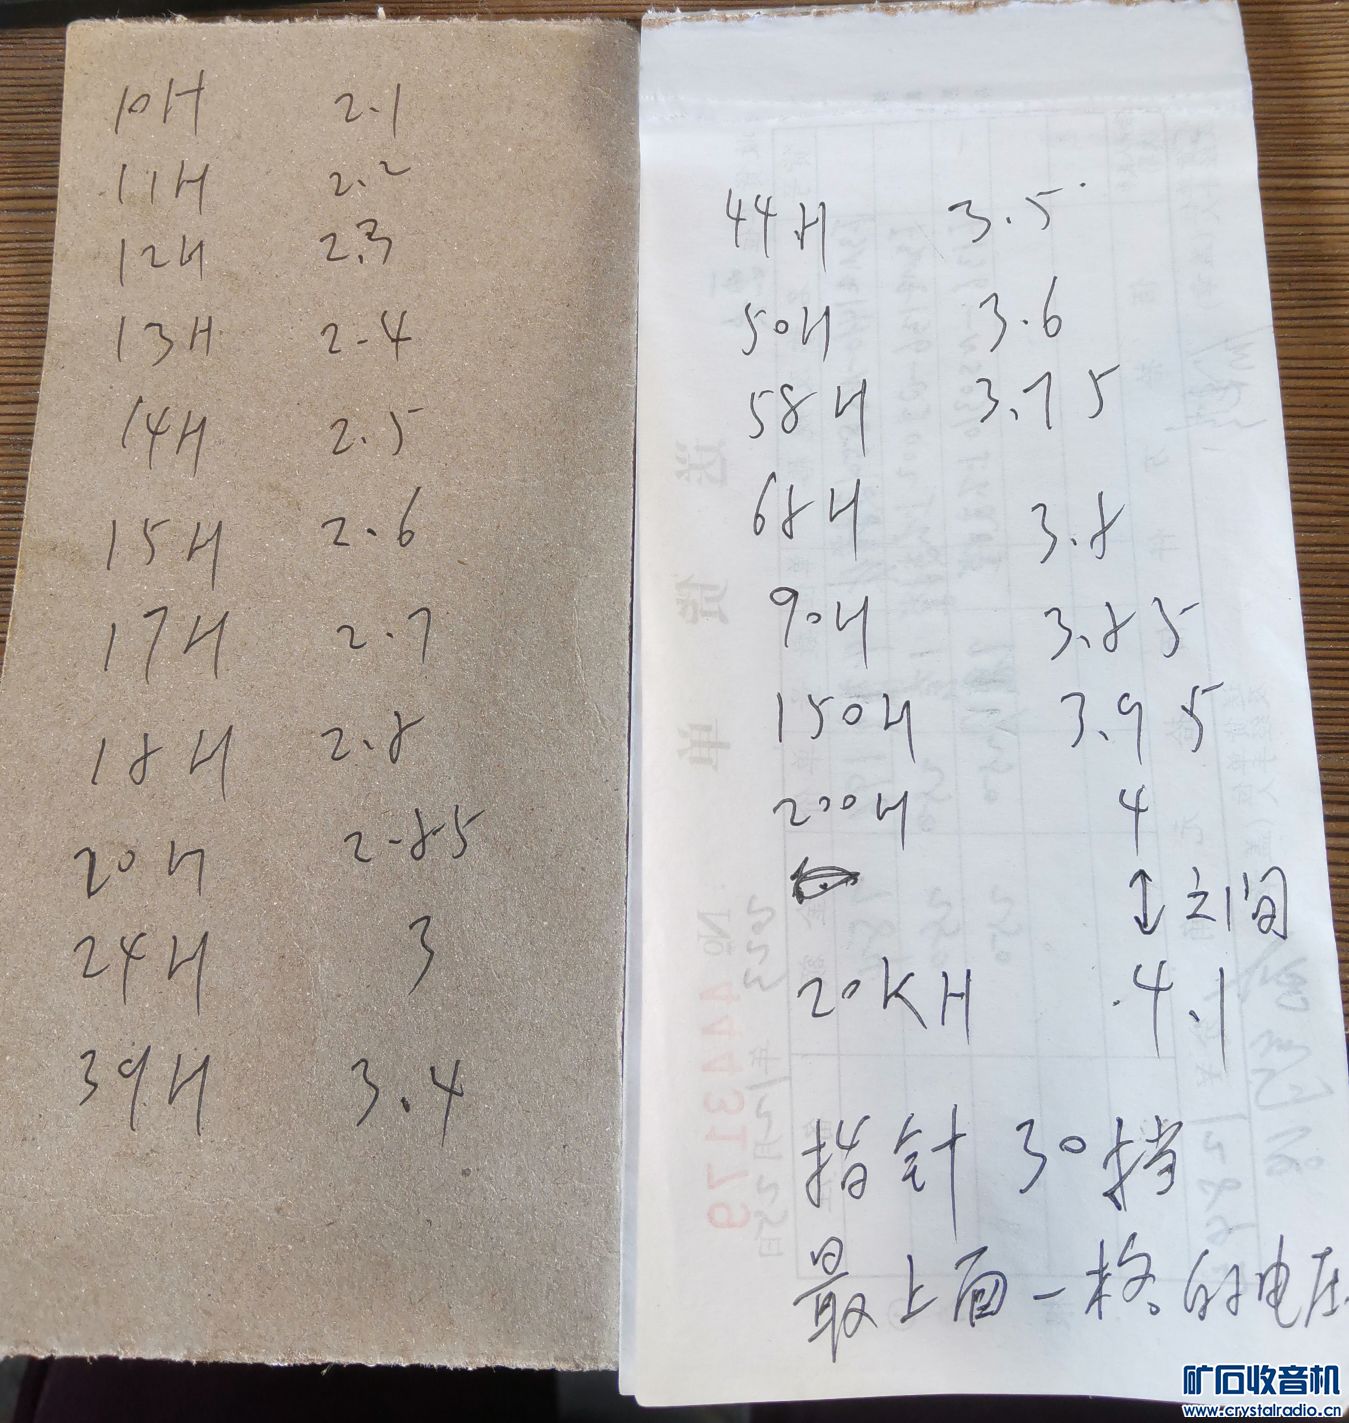 10H 2.1
11H 2.2
12H 2.3
13H 2.4
14H 2.5
15H 2.6
17H 2.7
18H 2.8
20H 2.85
24H 3
39H 3.4
44H 3.5
50H 3.6
58H 3.75
68H 3.8
90H 3.85
150H 3.95
200H 4
↕之间
20KH 4.1
指针30挡
最上面一格的电压
送货单
No 4443179
2023年12月25日
矿石收音机
www.crystalradio.cn